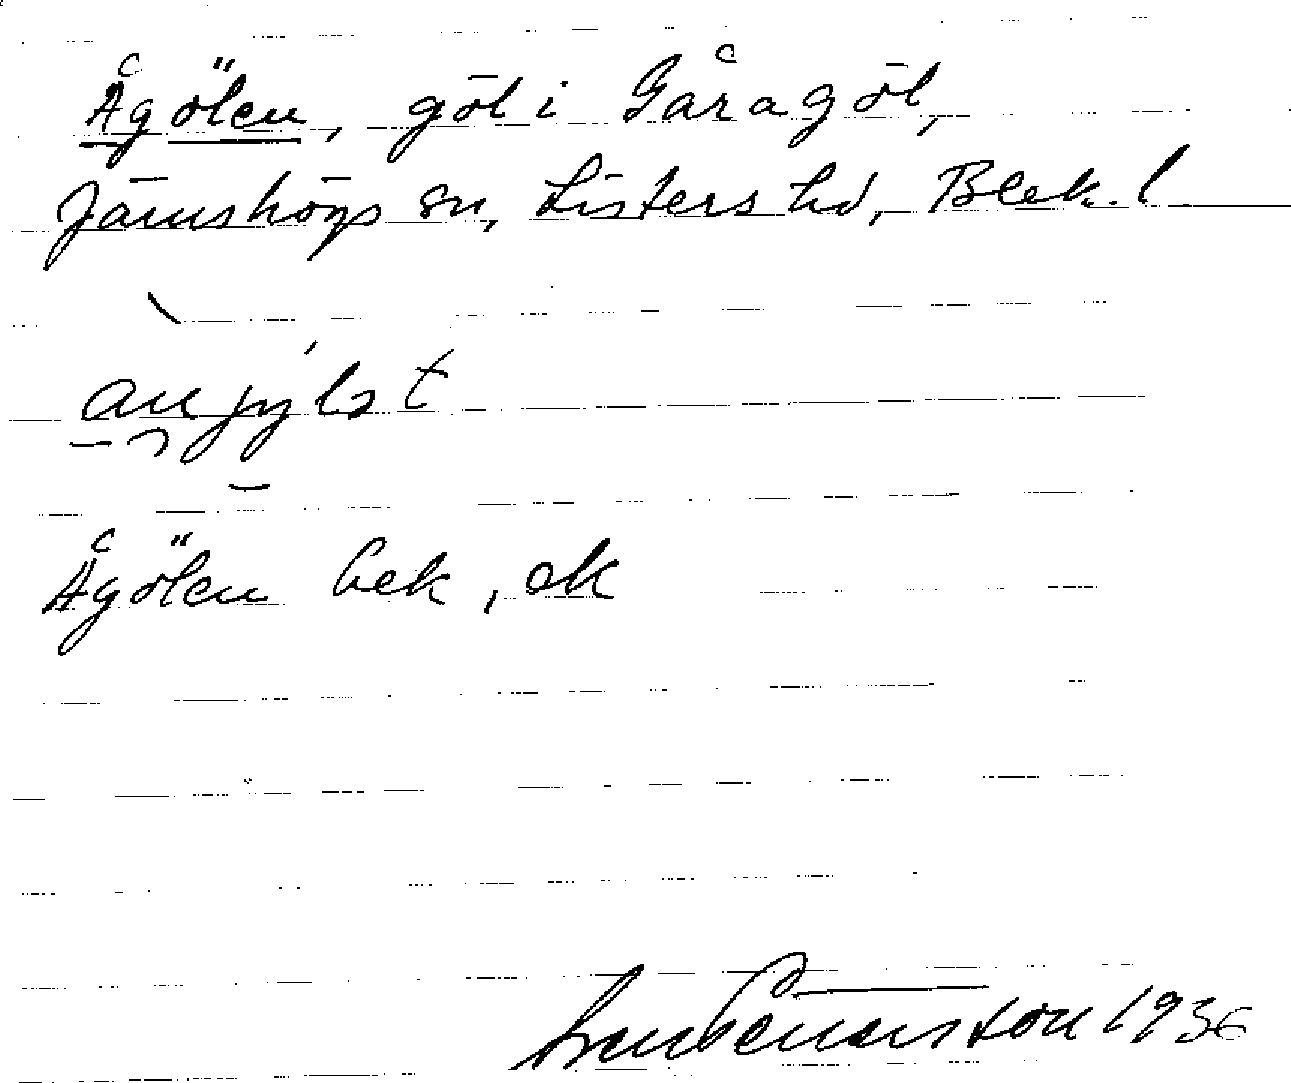 Ågölen, göl i Gåragöl,
Jämshögs sn, Listers hd, Blek. l
Ågölen bek, ek
1936